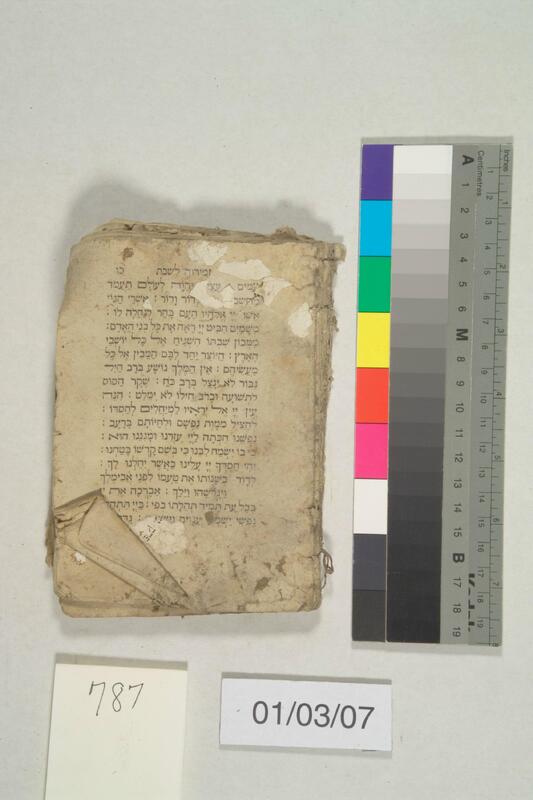 זמירות לשבת כו
לעולם תעמד
דור ודור : אשרי הגוי
אשר יי אלהיו העם בחר לנחלה לו :
משמים הביט יי ראה את כל בני האדם :
ממכון שבתו השגיח אל כל יושבי
הארץ : היוצר יחד לבם המבין אל כל
מעשיהם : אין המלך נושע ברב חיל
גבור לא ינצל ברב כח : שקר הסוס
לתשועה וברב חילו לא ימלט : הנה
עין יי אל יראיו למיחלים לחסדו :
להציל ממות נפשם ולחיותם ברעב :
נפשנו חכתה ליי עזרנו ומגננו הוא :
כי בו ישמח לבנו כי בשם קדשו בטחנו :
יהי חסדך יי עלינו כאשר יחלנו לך :
לדוד בשנותו את טעמו לפני אבימלך
ויגרשהו וילך : אברכה את יי
בכל עת תמיד תהלתו בפי : ביי תתהלל
נפשי ישמעו ענוים וישמחו :
787
01/03/07
Centimetres
Inches
A 1 2 3 4 5 6 M 8 9 10 11 12 13 14 15 B 17 18 19
1 2 3 4 5 6 7 8 9 10 11 12 13 14 15 16 17 18 19
1 2 3 4 5 6 7 8